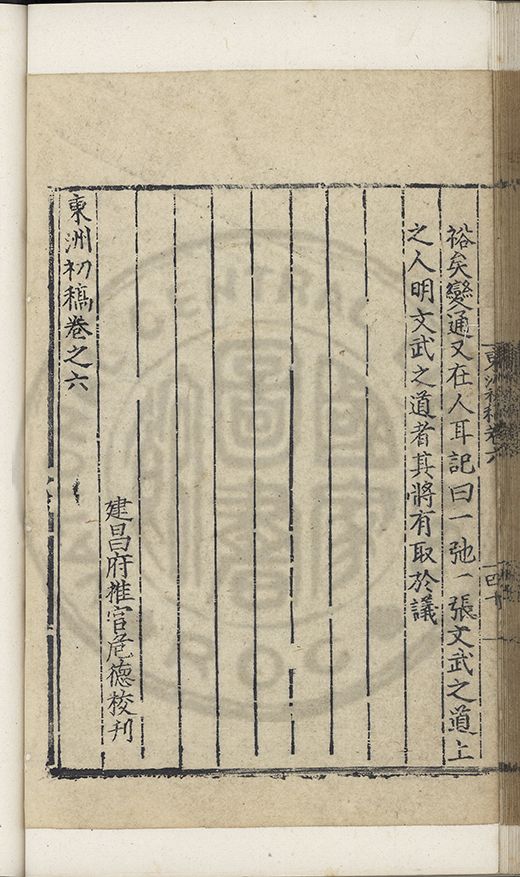 裕矣變通又在人耳記曰一弛一張文武之道上
之人明文武之道者其將有取於議
建昌府推官危德校刊
東洲初稿卷之六
東洲初稿卷六